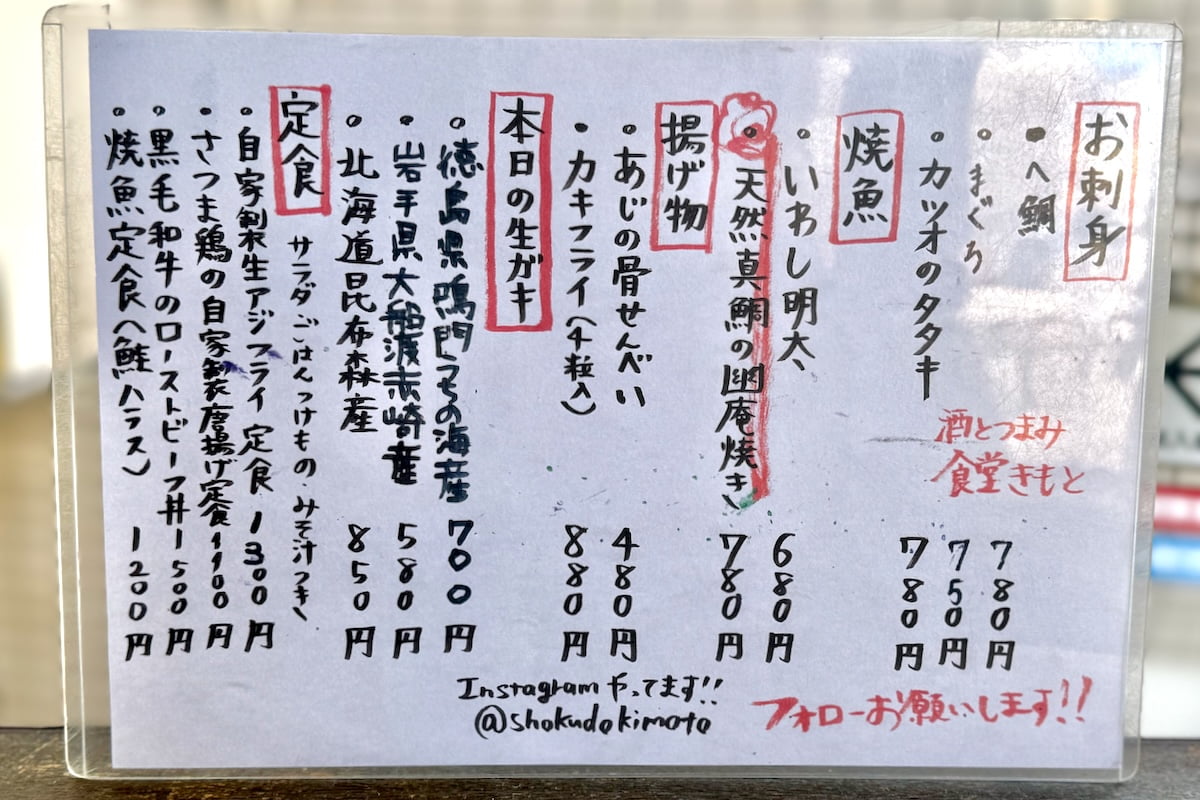 お刺身
・へ鯛 780円
・まぐろ 750円
・カツオのタタキ 780円
酒とつまみ
食堂きもと
焼魚
・いわし明太 680円
・天然真鯛の幽庵焼き 780円
揚げ物
・あじの骨せんべい 480円
・カキフライ(4粒入) 880円
本日の生ガキ
・徳島県鳴門うちの海産 700円
・岩手県大船渡赤崎産 580円
・北海道昆布森産 850円
定食 サラダ・ごはん・つけもの・みそ汁つき
・自家製生アジフライ定食 1300円
・さつま鶏の自家製唐揚げ定食 1100円
・黒毛和牛のローストビーフ丼 1500円
・焼魚定食(鮭ハラス) 1200円
Instagramやってます!!
@shokudokimoto
フォローお願いします!!